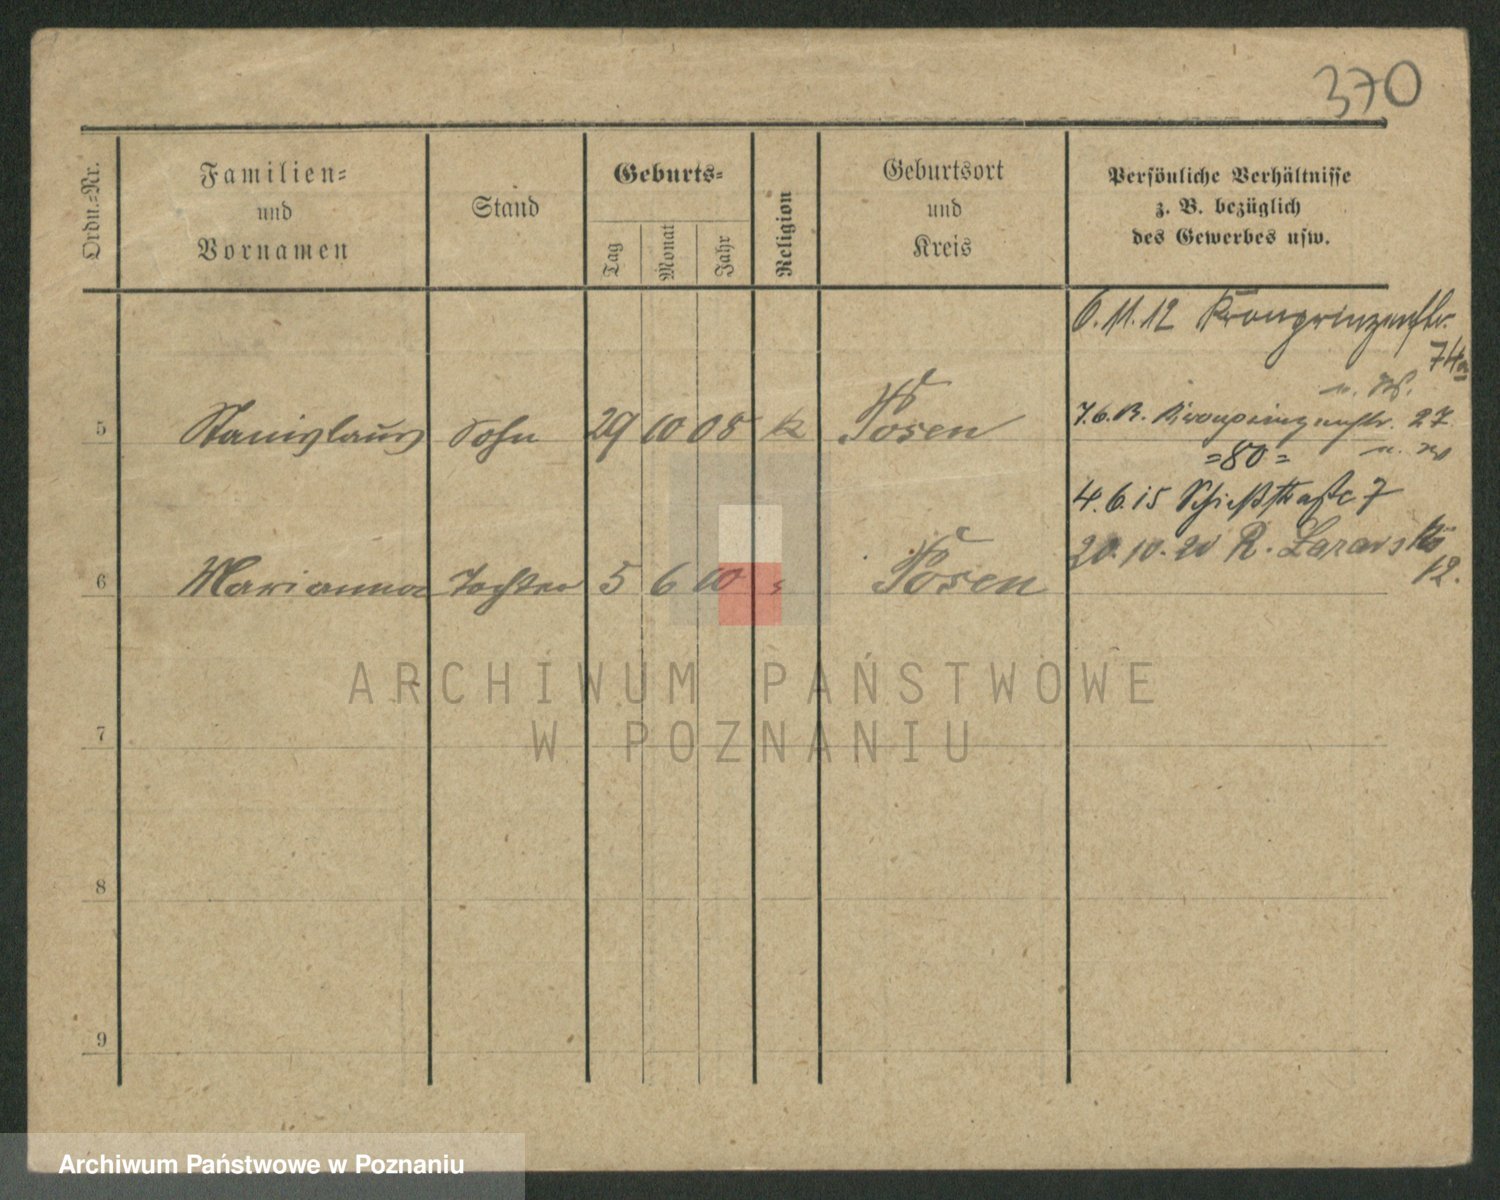 370
Ordn.=Nr.
Familien=
und
Vornamen
Stand
Geburts=
Tag
Monat
Jahr
Religion
Geburtsort
und
Kreis
Persönliche Verhältnisse
z. B. bezüglich
des Gewerbes usw.
6.11.12 Kronprinzenstr.
74a
5 Stanislaus Sohn 29 10 08 k Posen
7.6. Kronprinzenstr. 27
=80=
4.6.15 Schießstraße 7
20.10.20 R.
12.
6 Marianna Tochter 5 6 10 Posen
7
8
9
ARCHIWUM PAŃSTWOWE
W POZNANIU
Archiwum Państwowe w Poznaniu